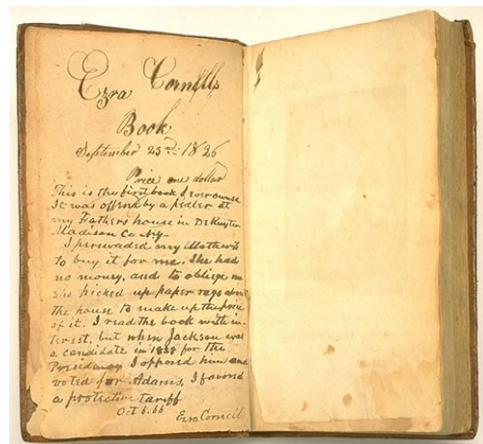 Ezra Cornells
Book
September 23rd 1826
Price one dollar
This is the first book I ever owned
It was offerd by a pedler at
my Fathers house in DeRuyter
Madison Co Ny-
I persuaded my Mother
to buy it for me. She had
no money, and to oblige me
she picked up paper rags about
the house to make up the price
of it. I read the book with in-
terest, but when Jackson was
a candidate in 1828 for the
Presidency I opposed him and
voted for Adams, I favord
a protective tariff
Oct 5.66 Ezra Cornell